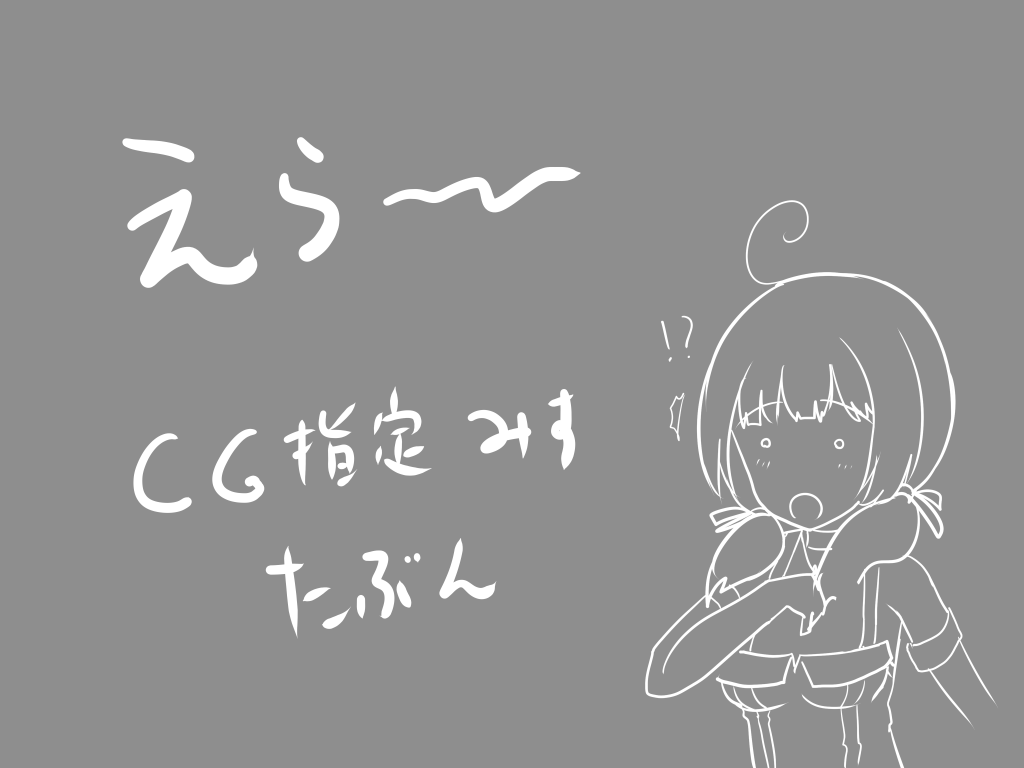 えら〜
!?
CG指定 みす
たぶん